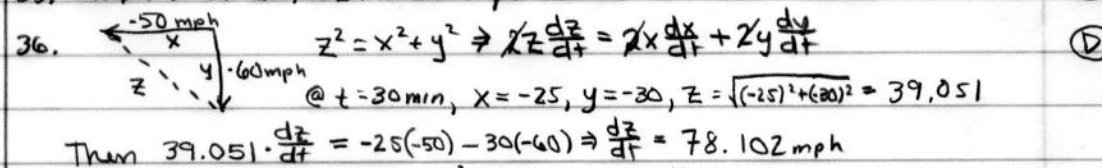 36. -50 mph x y -60mph z z² = x² + y² ⇒ 2z dz/dt = 2x dx/dt + 2y dy/dt D
@ t = 30 min, x = -25, y = -30, z = √((-25)²+(-30)²) = 39,051
Then 39.051 · dz/dt = -25(-50) - 30(-60) ⇒ dz/dt = 78.102 mph